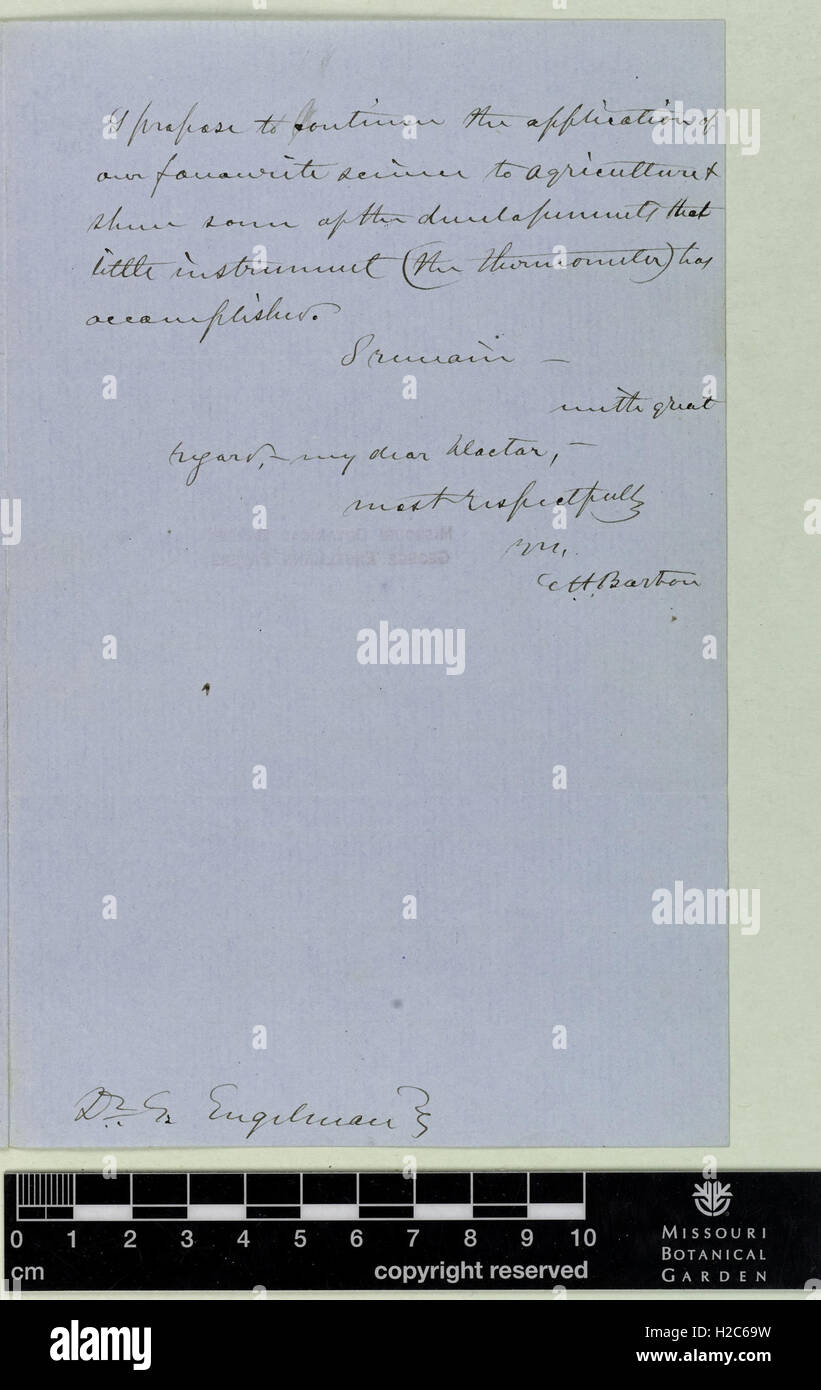 I propose to continue the application of
our favourite science to agriculture &
show some of the developements that
little instrument (the thermometer) has
accomplished.
I remain —
with great
regard, – my dear Doctor, –
most respectfully
yrs.
EH. Barton
Dr. G. Engelman
MISSOURI BOTANICAL GARDEN
GEORGE ENGELMANN PAPERS
0 1 2 3 4 5 6 7 8 9 10
cm
copyright reserved
MISSOURI
BOTANICAL
GARDEN
alamy
alamy stock photo
H2C69W
www.alamy.com